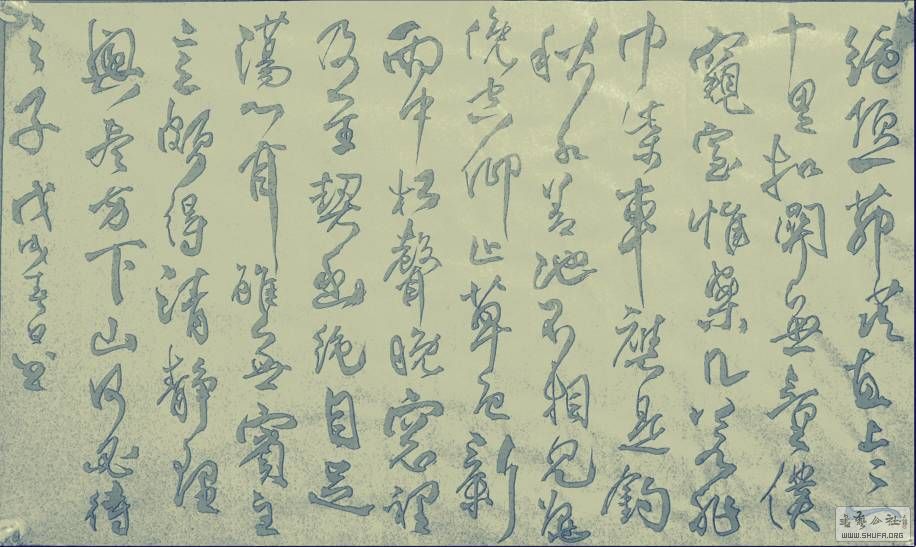 絕頂一茅茨直上三
十里扣關無童僕
窺室惟案几若非
巾柴車應是釣
秋水差池不相見黽
俛空仰止草色新
雨中松聲晚窗裡
及茲契幽絕自足
蕩心耳雖無賓主
意頗得清靜理
興盡方下山何必待
之子 戊戌春日書
WWW.SHUFA.ORG